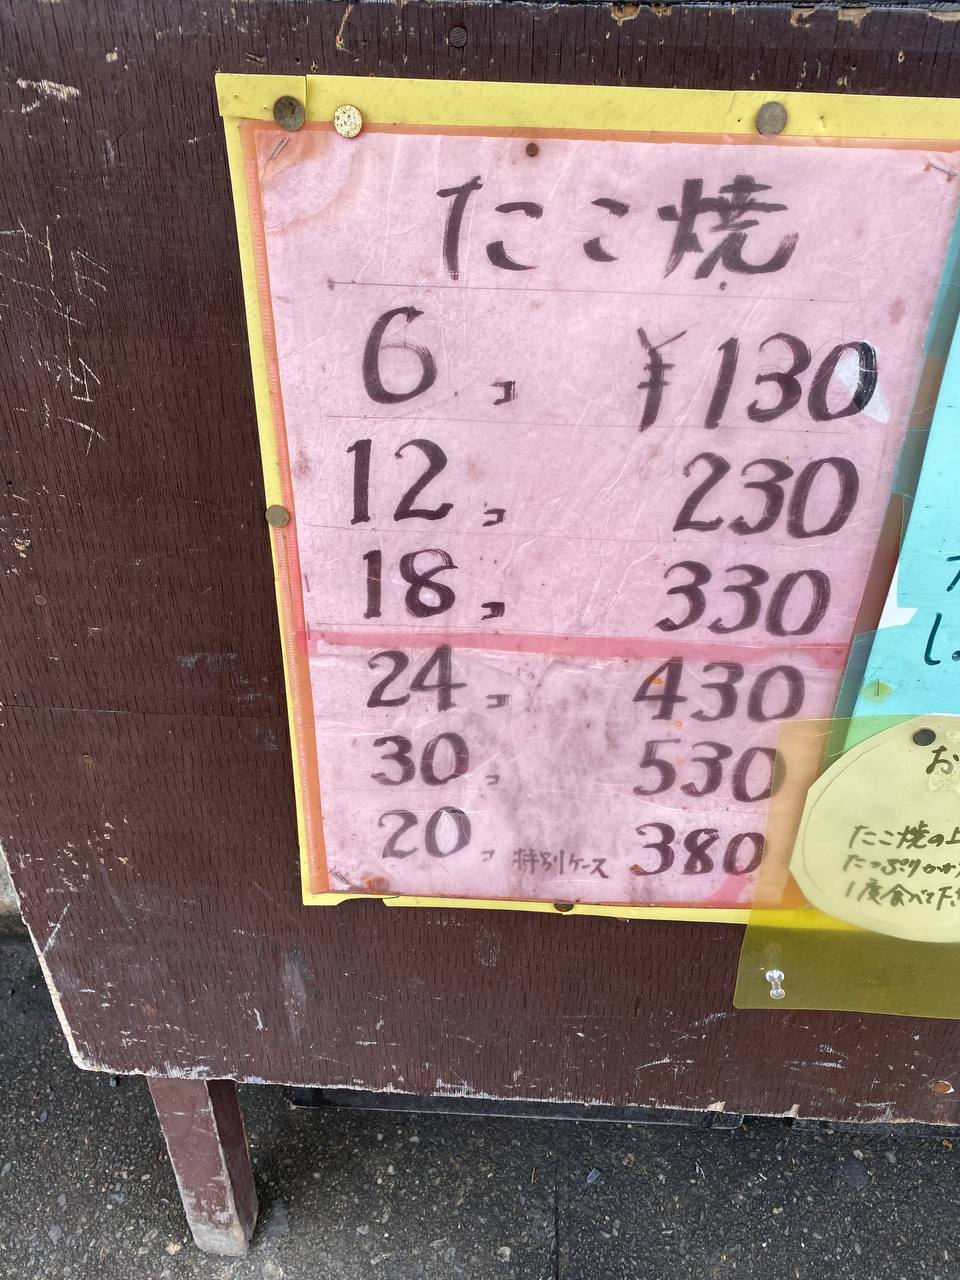 たこ焼
6コ ¥130
12コ 230
18コ 330
24コ 430
30コ 530
20コ 特別ケース 380
し
お
たこ焼の上
たっぷりかか
1度食べて下さ